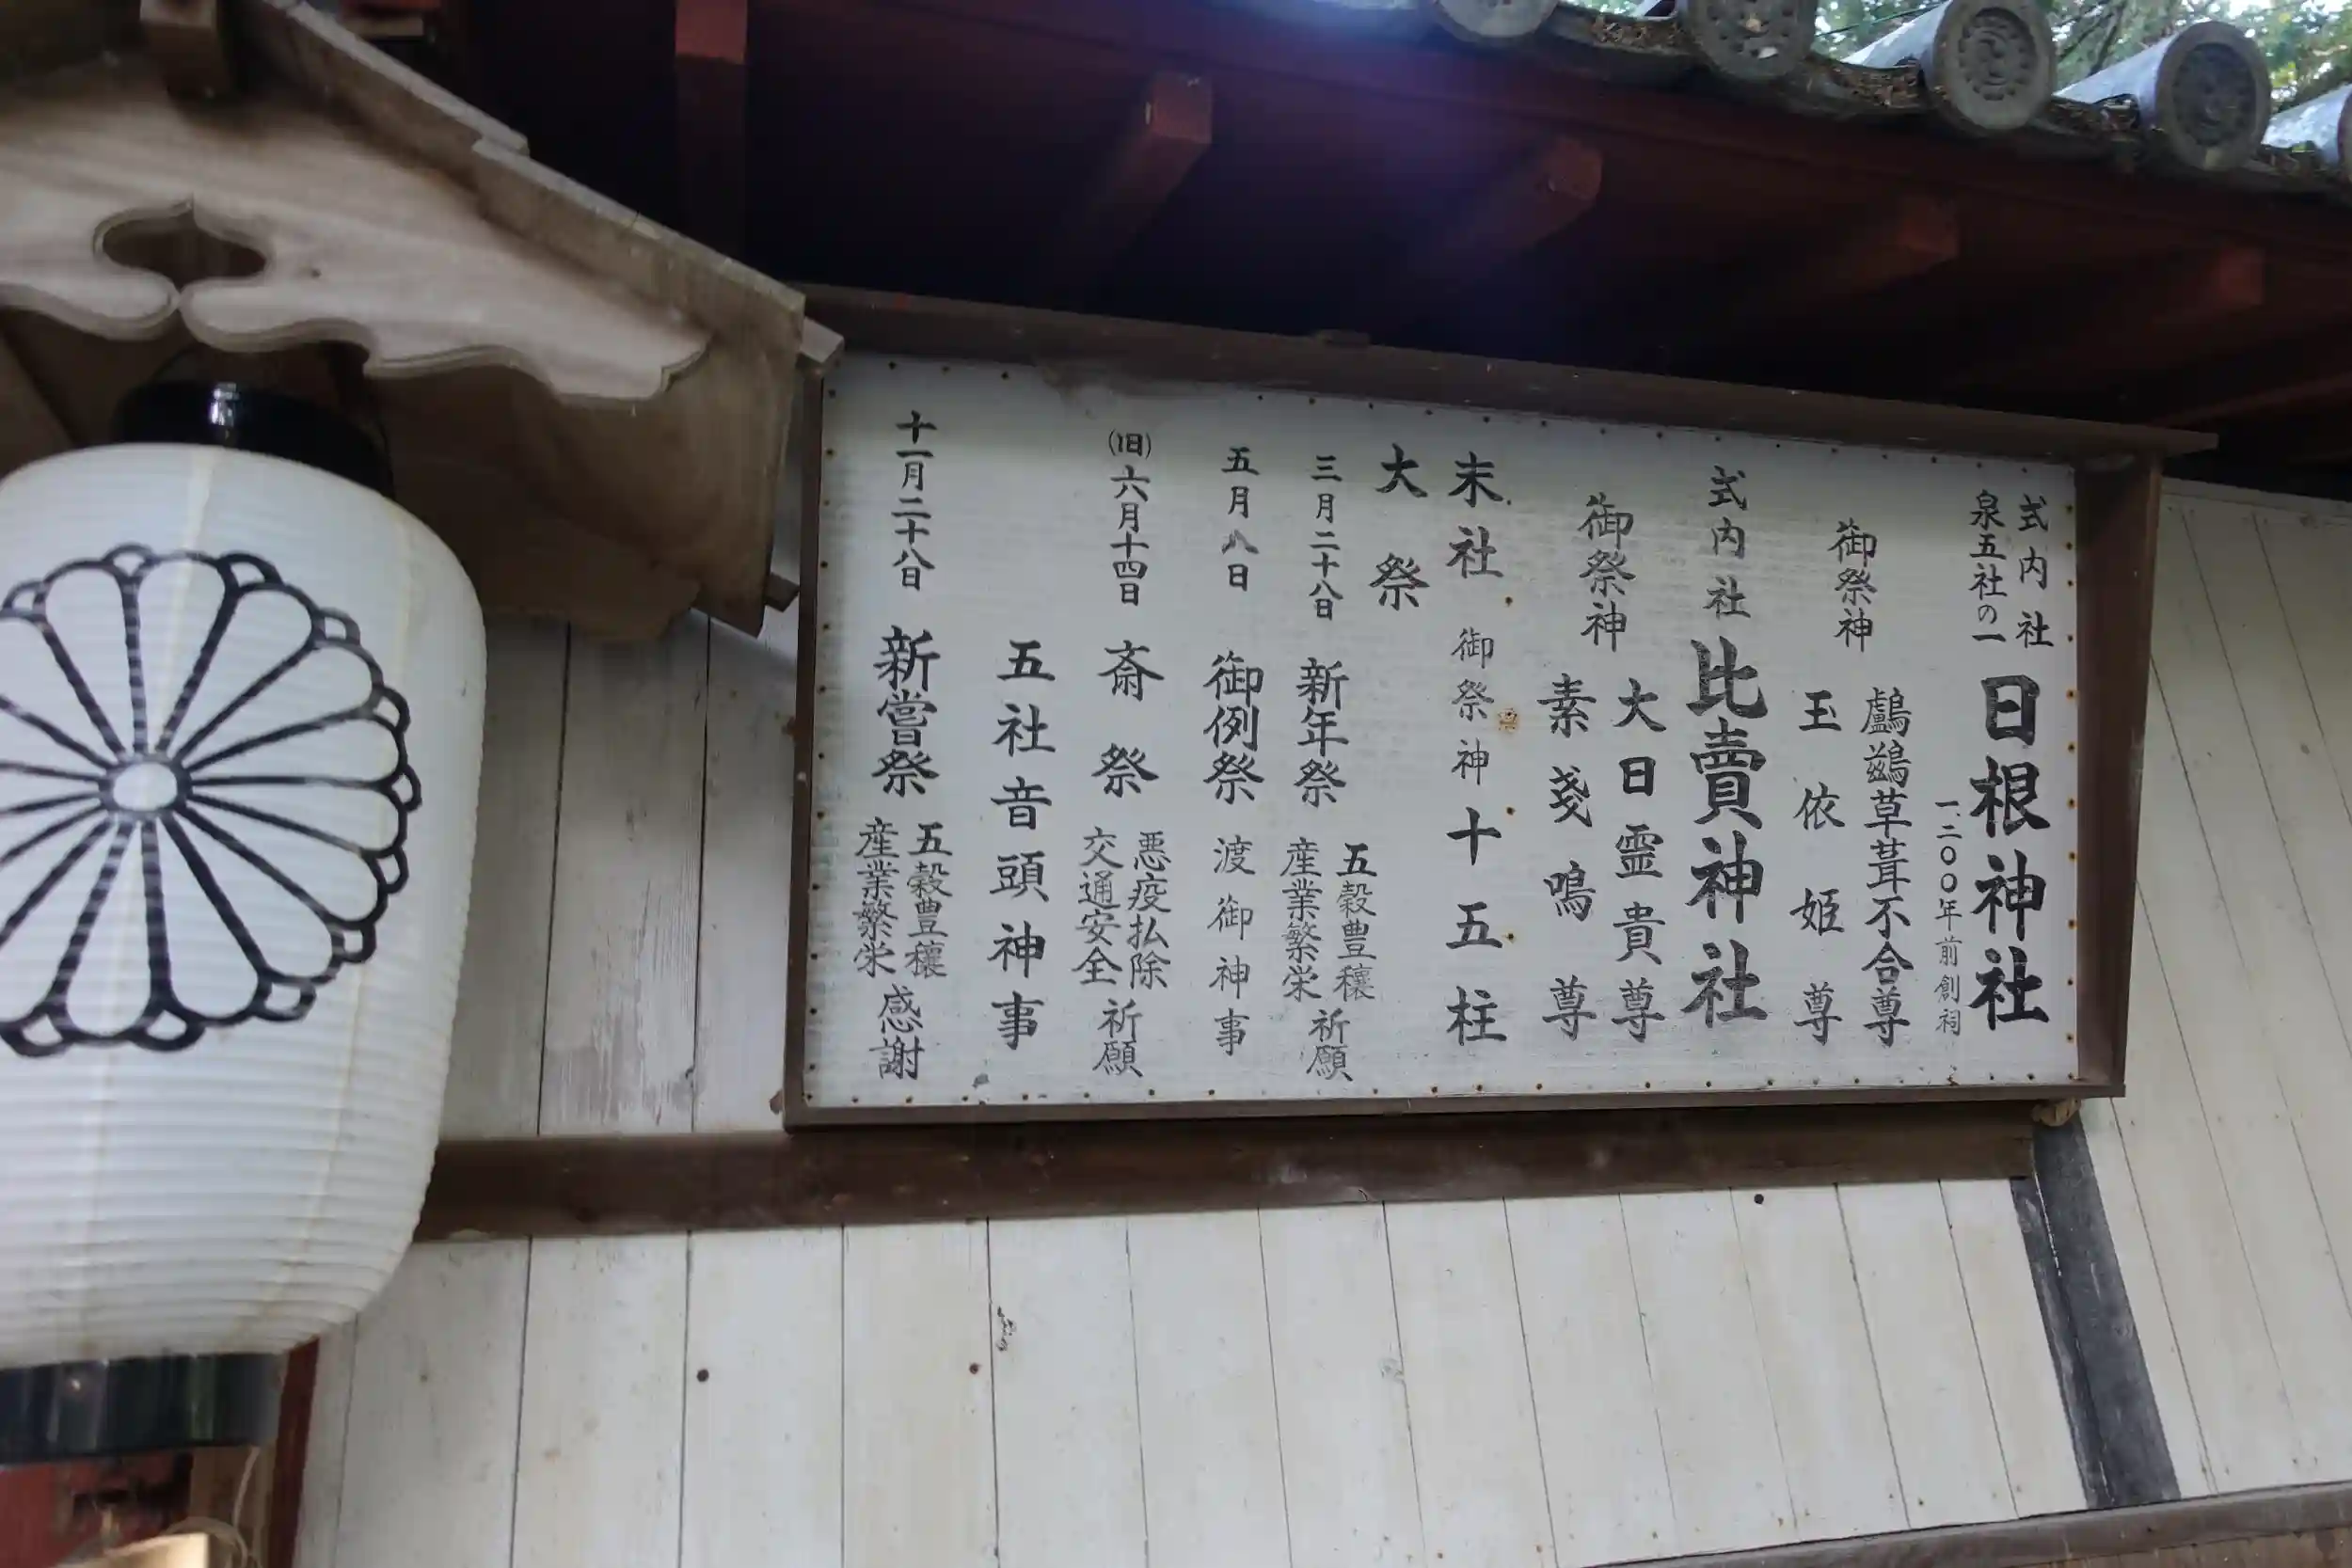 式内社
泉五社の一
日根神社
一、二〇〇年前創祠
御祭神
鸕鷀草葺不合尊
玉依姫尊
式内社 比賣神社
御祭神
大日霊貴尊
素戔鳴尊
末社 御祭神 十五柱
大祭
三月二十八日 新年祭
五穀豊穰
産業繁栄
祈願
五月八日 御例祭 渡御神事
(旧)六月十四日 斎祭
悪疫払除
交通安全
祈願
五社音頭神事
十一月二十八日 新嘗祭
五穀豊穰
産業繁栄
感謝